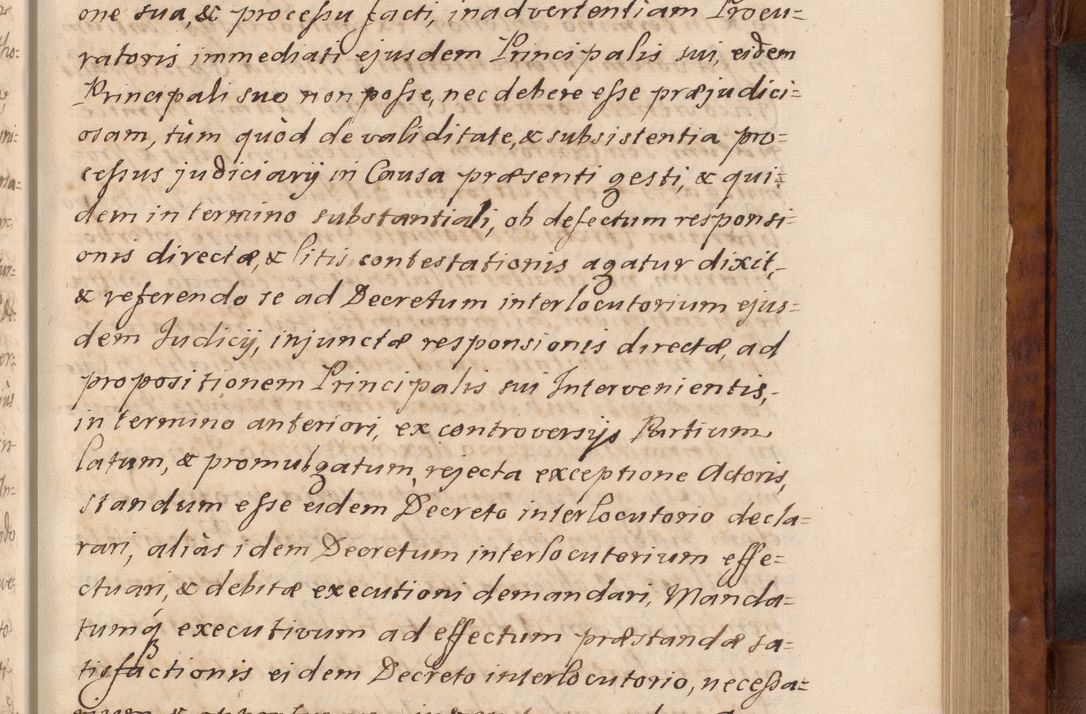 one sua, & processu facti, inadvertentiam Procu=
ratoris immediati ejusdem Principalis sui, eidem
Principali suo non posse, nec debere esse præjudici=
osam, tùm quòd de validitate, & subsistentia pro=
cessus judiciarij in Causa præsenti gesti, & qui=
dem in termino substantiali, ob defectum responsi=
onis directæ, & litis contestationis agatur dixit,
& referendo se ad Decretum interlocutorium ejus=
dem Judicij, injunctæ responsionis directæ, ad
propositionem Principalis sui Intervenientis,
in termino anteriori, ex controversijs Partium
latum, & promulgatum, rejecta exceptione Actoris,
standum esse eidem Decreto interlocutorio decla=
rari, aliàs idem Decretum interlocutorium effe=
ctuari, & debitæ executioni demandari, Manda=
tumq́ executivum ad effectum præstandæ sa=
tisfactionis eidem Decreto interlocutorio, necessa=